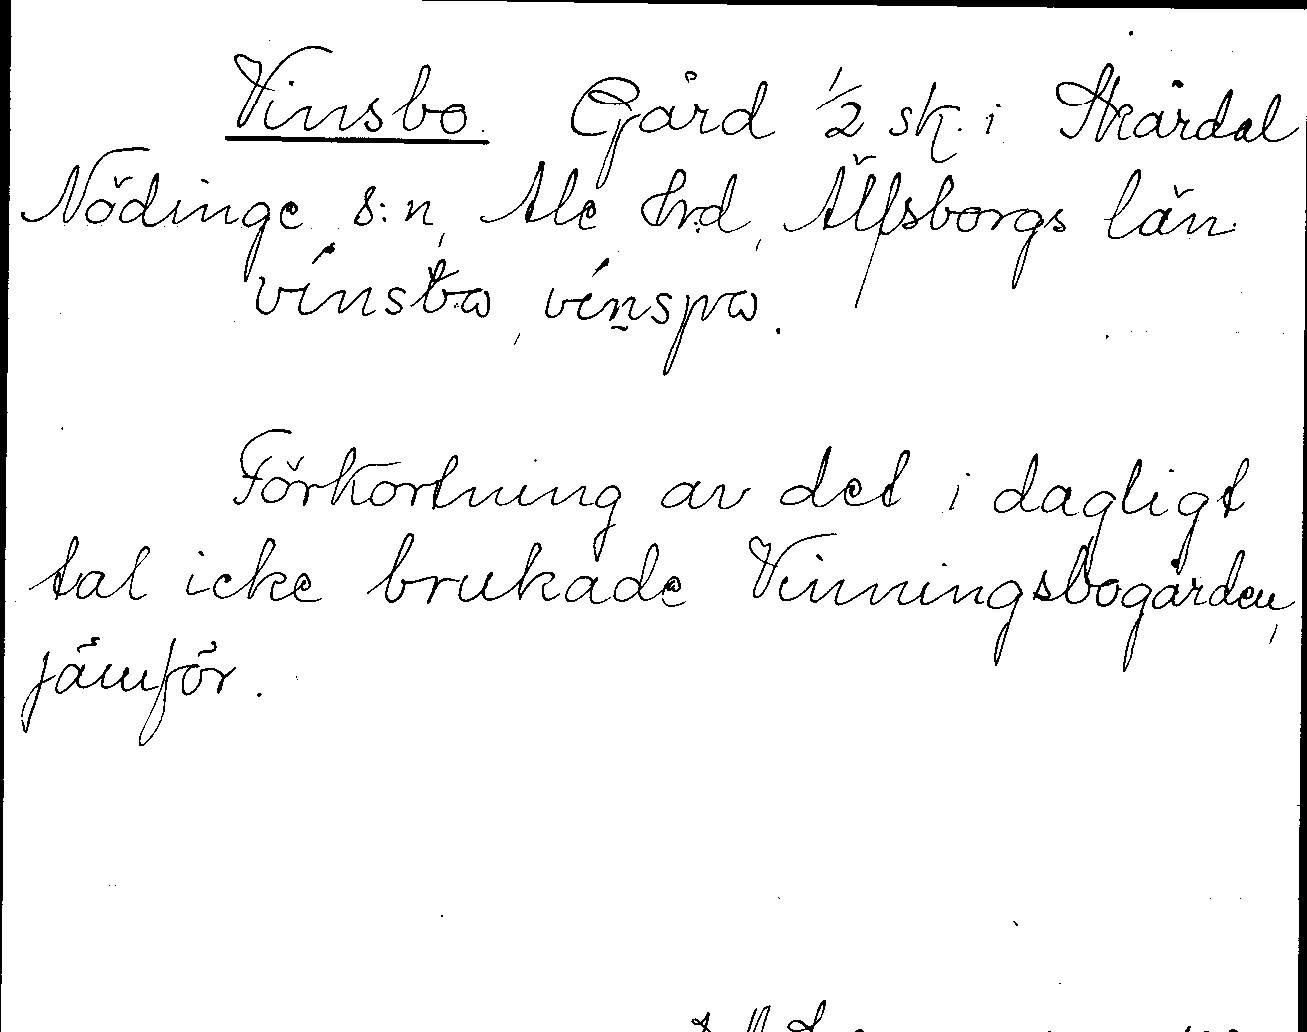 Vinsbo. Gård 1/2 sk. i Skårdal
Nödinge s:n, Ale hrd, Älfsborgs län.
vínsba, vínspa.
Förkortning av det i dagligt
tal icke brukade Vinningsbogården,
jämför.